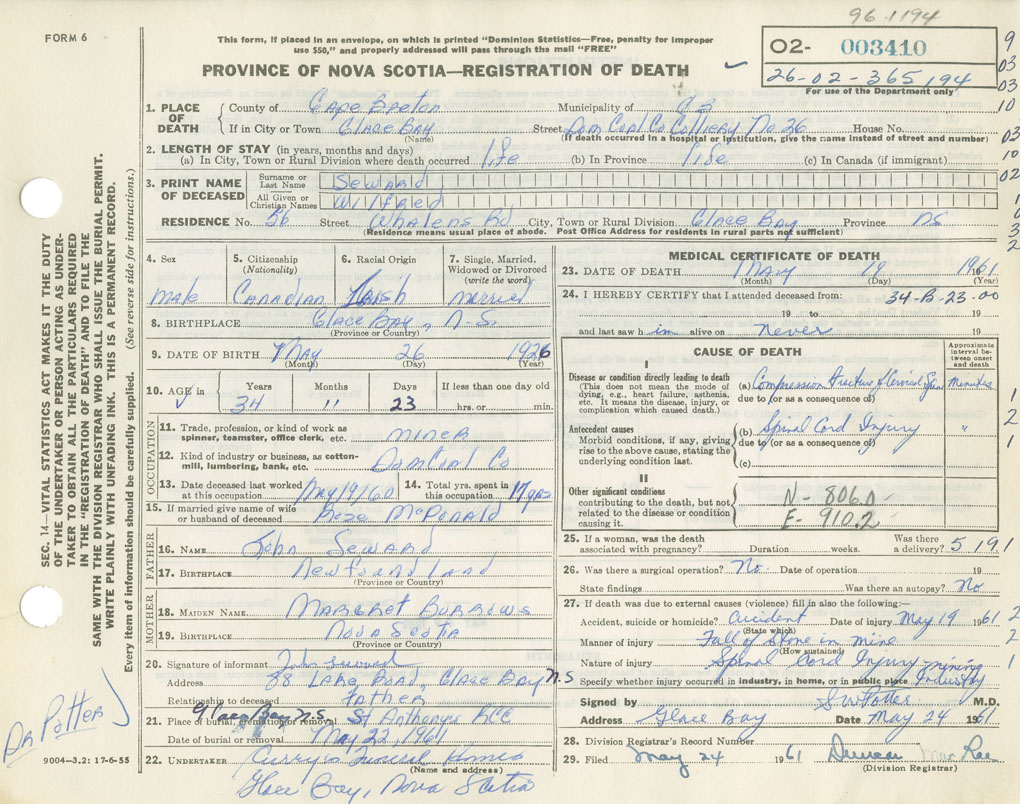 96-1194
FORM 6
This form, if placed in an envelope, on which is printed "Dominion Statistics—Free, penalty for improper
use $50," and properly addressed will pass through the mail "FREE"
O2- 003410
26-02-365194
For use of the Department only
PROVINCE OF NOVA SCOTIA—REGISTRATION OF DEATH
1. PLACE OF DEATH { County of Cape Breton Municipality of C B
If in City or Town Glace Bay Street Dom Coal Co Colliery No. 26 House No.
(Name) (If death occurred in a hospital or institution, give the name instead of street and number)
2. LENGTH OF STAY (in years, months and days)
(a) In City, Town or Rural Division where death occurred life (b) In Province life (c) In Canada (if immigrant)
3. PRINT NAME OF DECEASED
Surname or Last Name Seward
All Given or Christian Names Wilfred
RESIDENCE No. 56 Street Whalens Rd City, Town or Rural Division Glace Bay Province NS
(Residence means usual place of abode. Post Office Address for residents in rural parts not sufficient)
4. Sex male
5. Citizenship (Nationality) Canadian
6. Racial Origin Irish
7. Single, Married, Widowed or Divorced (write the word) married
8. BIRTHPLACE Glace Bay, N-S.
(Province or Country)
9. DATE OF BIRTH May 26 1926
(Month) (Day) (Year)
10. AGE in { Years 34 Months 11 Days 23 If less than one day old hrs. or min.
OCCUPATION
11. Trade, profession, or kind of work as spinner, teamster, office clerk, etc. miner
12. Kind of industry or business, as cotton-mill, lumbering, bank, etc. Dom Coal Co
13. Date deceased last worked at this occupation May 19/60 14. Total yrs. spent in this occupation 17 yrs
15. If married give name of wife or husband of deceased Rose McDonald
FATHER
16. NAME John Seward
17. BIRTHPLACE Newfoundland
(Province or Country)
MOTHER
18. MAIDEN NAME Margret Burrows
19. BIRTHPLACE Nova Scotia
(Province or Country)
20. Signature of informant John Seward
Address 88 Lake Road, Glace Bay N.S
Relationship to deceased father
21. Place of burial, cremation or removal Glace Bay N.S. St Anthonys RCC
Date of burial or removal May 22, 1961
22. UNDERTAKER Currys Funeral Homes
(Name and address)
Glace Bay, Nova Scotia
MEDICAL CERTIFICATE OF DEATH
23. DATE OF DEATH May 19 1961
(Month) (Day) (Year)
24. I HEREBY CERTIFY that I attended deceased from: 34-B-23.00
19 to 19
and last saw him alive on Never 19
CAUSE OF DEATH
Approximate interval between onset and death
I
Disease or condition directly leading to death
(This does not mean the mode of dying, e.g., heart failure, asthenia, etc. It means the disease, injury, or complication which caused death.)
(a) Compression fracture of Cervical Spine Minutes
due to (or as a consequence of)
Antecedent causes
Morbid conditions, if any, giving rise to the above cause, stating the underlying condition last.
(b) Spinal Cord Injury "
due to (or as a consequence of)
(c)
II
Other significant conditions
contributing to the death, but not related to the disease or condition causing it.
N-806.0
E-910.2
25. If a woman, was the death associated with pregnancy? Duration weeks. Was there a delivery? 5 19 1
26. Was there a surgical operation? No. Date of operation 19
State findings Was there an autopsy? No
27. If death was due to external causes (violence) fill in also the following:—
Accident, suicide or homicide? Accident Date of injury May 19 1961
(State which)
Manner of injury Fall of stone in mine
(How sustained)
Nature of injury Spinal Cord Injury - mining
Specify whether injury occurred in industry, in home, or in public place Industry
Signed by S W Potter M.D.
Address Glace Bay Date May 24 1961
28. Division Registrar's Record Number
29. Filed May 24 1961 Duncan MacRae
(Division Registrar)
SEC. 14—VITAL STATISTICS ACT MAKES IT THE DUTY
OF THE UNDERTAKER OR PERSON ACTING AS UNDER-
TAKER TO OBTAIN ALL THE PARTICULARS REQUIRED
IN THE "REGISTRATION OF DEATH" AND TO FILE THE
SAME WITH THE DIVISION REGISTRAR WHO SHALL ISSUE THE BURIAL PERMIT.
WRITE PLAINLY WITH UNFADING INK. THIS IS A PERMANENT RECORD.
Every item of information should be carefully supplied. (See reverse side for instructions.)
Dr Potter
9004-3.2: 17-6-55
9
03
03
10
03
10
02
1
0
3
2
1
2
1
2
2
1